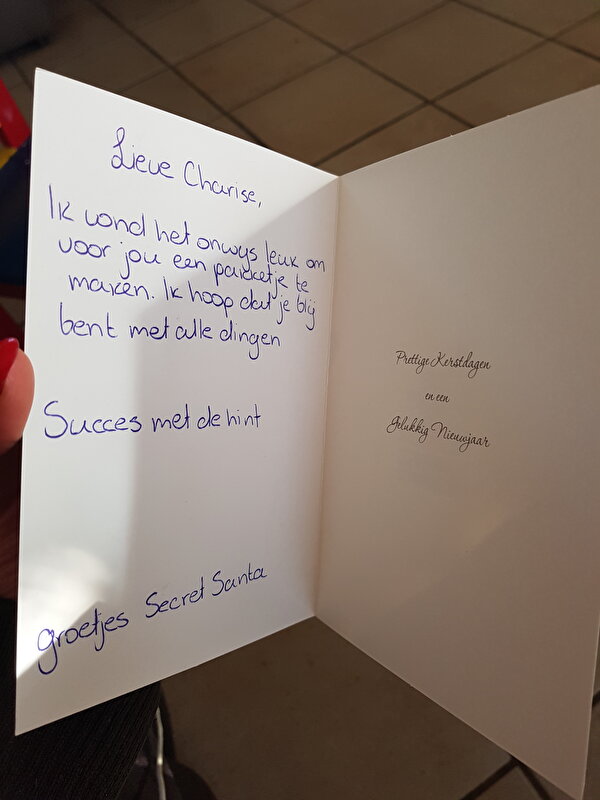 Lieve Charise,
Ik vond het onwijs leuk om
voor jou een pakketje te
maken. Ik hoop dat je blij
bent met alle dingen
Succes met de hint
groetjes Secret Santa
Prettige Kerstdagen
en een
Gelukkig Nieuwjaar